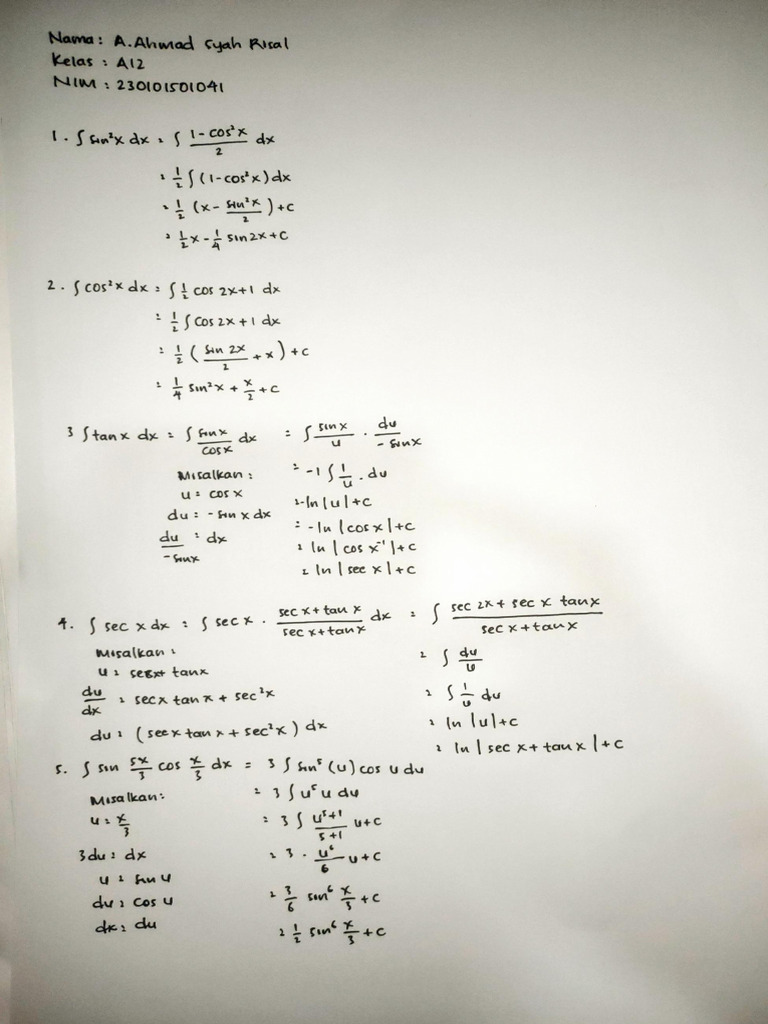 Nama : A. Ahmad Syah Risal
Kelas : A12
NIM : 230101501041
1. ∫ sin²x dx = ∫ (1 - cos²x)/2 dx
= 1/2 ∫ (1 - cos²x) dx
= 1/2 (x - sin²x/2) + c
= 1/2 x - 1/4 sin 2x + c
2. ∫ cos²x dx = ∫ 1/2 cos 2x + 1 dx
= 1/2 ∫ cos 2x + 1 dx
= 1/2 (sin 2x/2 + x) + c
= 1/4 sin²x + x/2 + c
3 ∫ tan x dx = ∫ sin x/cos x dx = ∫ sin x/u . du/-sin x
Misalkan : = -1 ∫ 1/u . du
u = cos x = -ln |u| + c
du = - sin x dx = -ln |cos x| + c
du/-sin x = dx = ln |cos x⁻¹| + c
= ln |sec x| + c
4. ∫ sec x dx = ∫ sec x . (sec x + tan x)/(sec x + tan x) dx = ∫ (sec 2x + sec x tan x)/(sec x + tan x)
Misalkan : = ∫ du/u
u = secx + tan x
du/dx = sec x tan x + sec²x = ∫ 1/u du
du = (sec x tan x + sec²x) dx = ln |u| + c
= ln | sec x + tan x | + c
5. ∫ sin 5x/3 cos x/3 dx = 3 ∫ sin⁵ (u) cos u du
Misalkan : = 3 ∫ u⁵ u du
u = x/3 = 3 ∫ u⁵⁺¹/5+1 u + c
3 du = dx = 3 . u⁶/6 u + c
u = sin u
du = cos u = 3/6 sin⁶ x/3 + c
dx = du = 1/2 sin⁶ x/3 + c